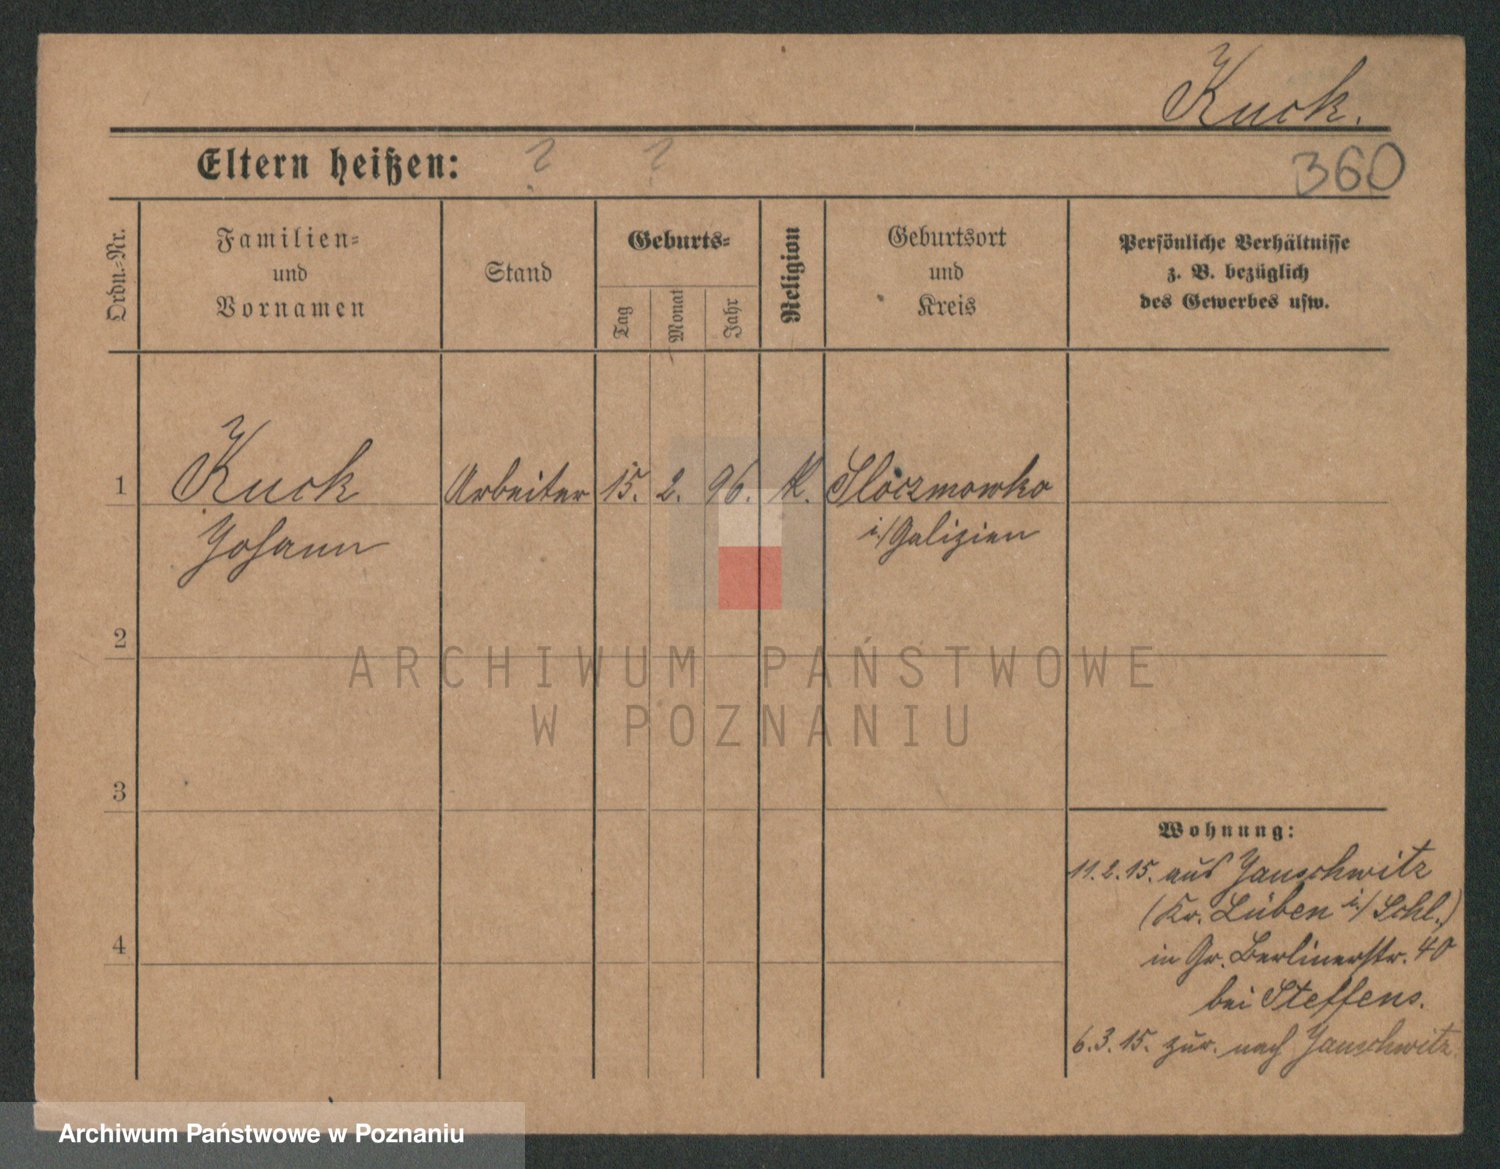 Kuck.
Eltern heißen: ? ?
360
Ordn.-Nr.
Familien-
und
Vornamen
Stand
Geburts-
Tag
Monat
Jahr
Religion
Geburtsort
und
Kreis
Persönliche Verhältnisse
z. B. bezüglich
des Gewerbes usw.
1
Kuck Arbeiter 15. 2. 96. K. Sloczmowko
Johann i/Galizien
2
ARCHIWUM PAŃSTWOWE
W POZNANIU
3
4
Wohnung:
11.2.15. aus Jauschwitz
(Kr. Lüben i/Schl.)
in Gr. Berlinerstr. 40
bei Steffens.
6.3.15. zur. nach Jauschwitz.
Archiwum Państwowe w Poznaniu